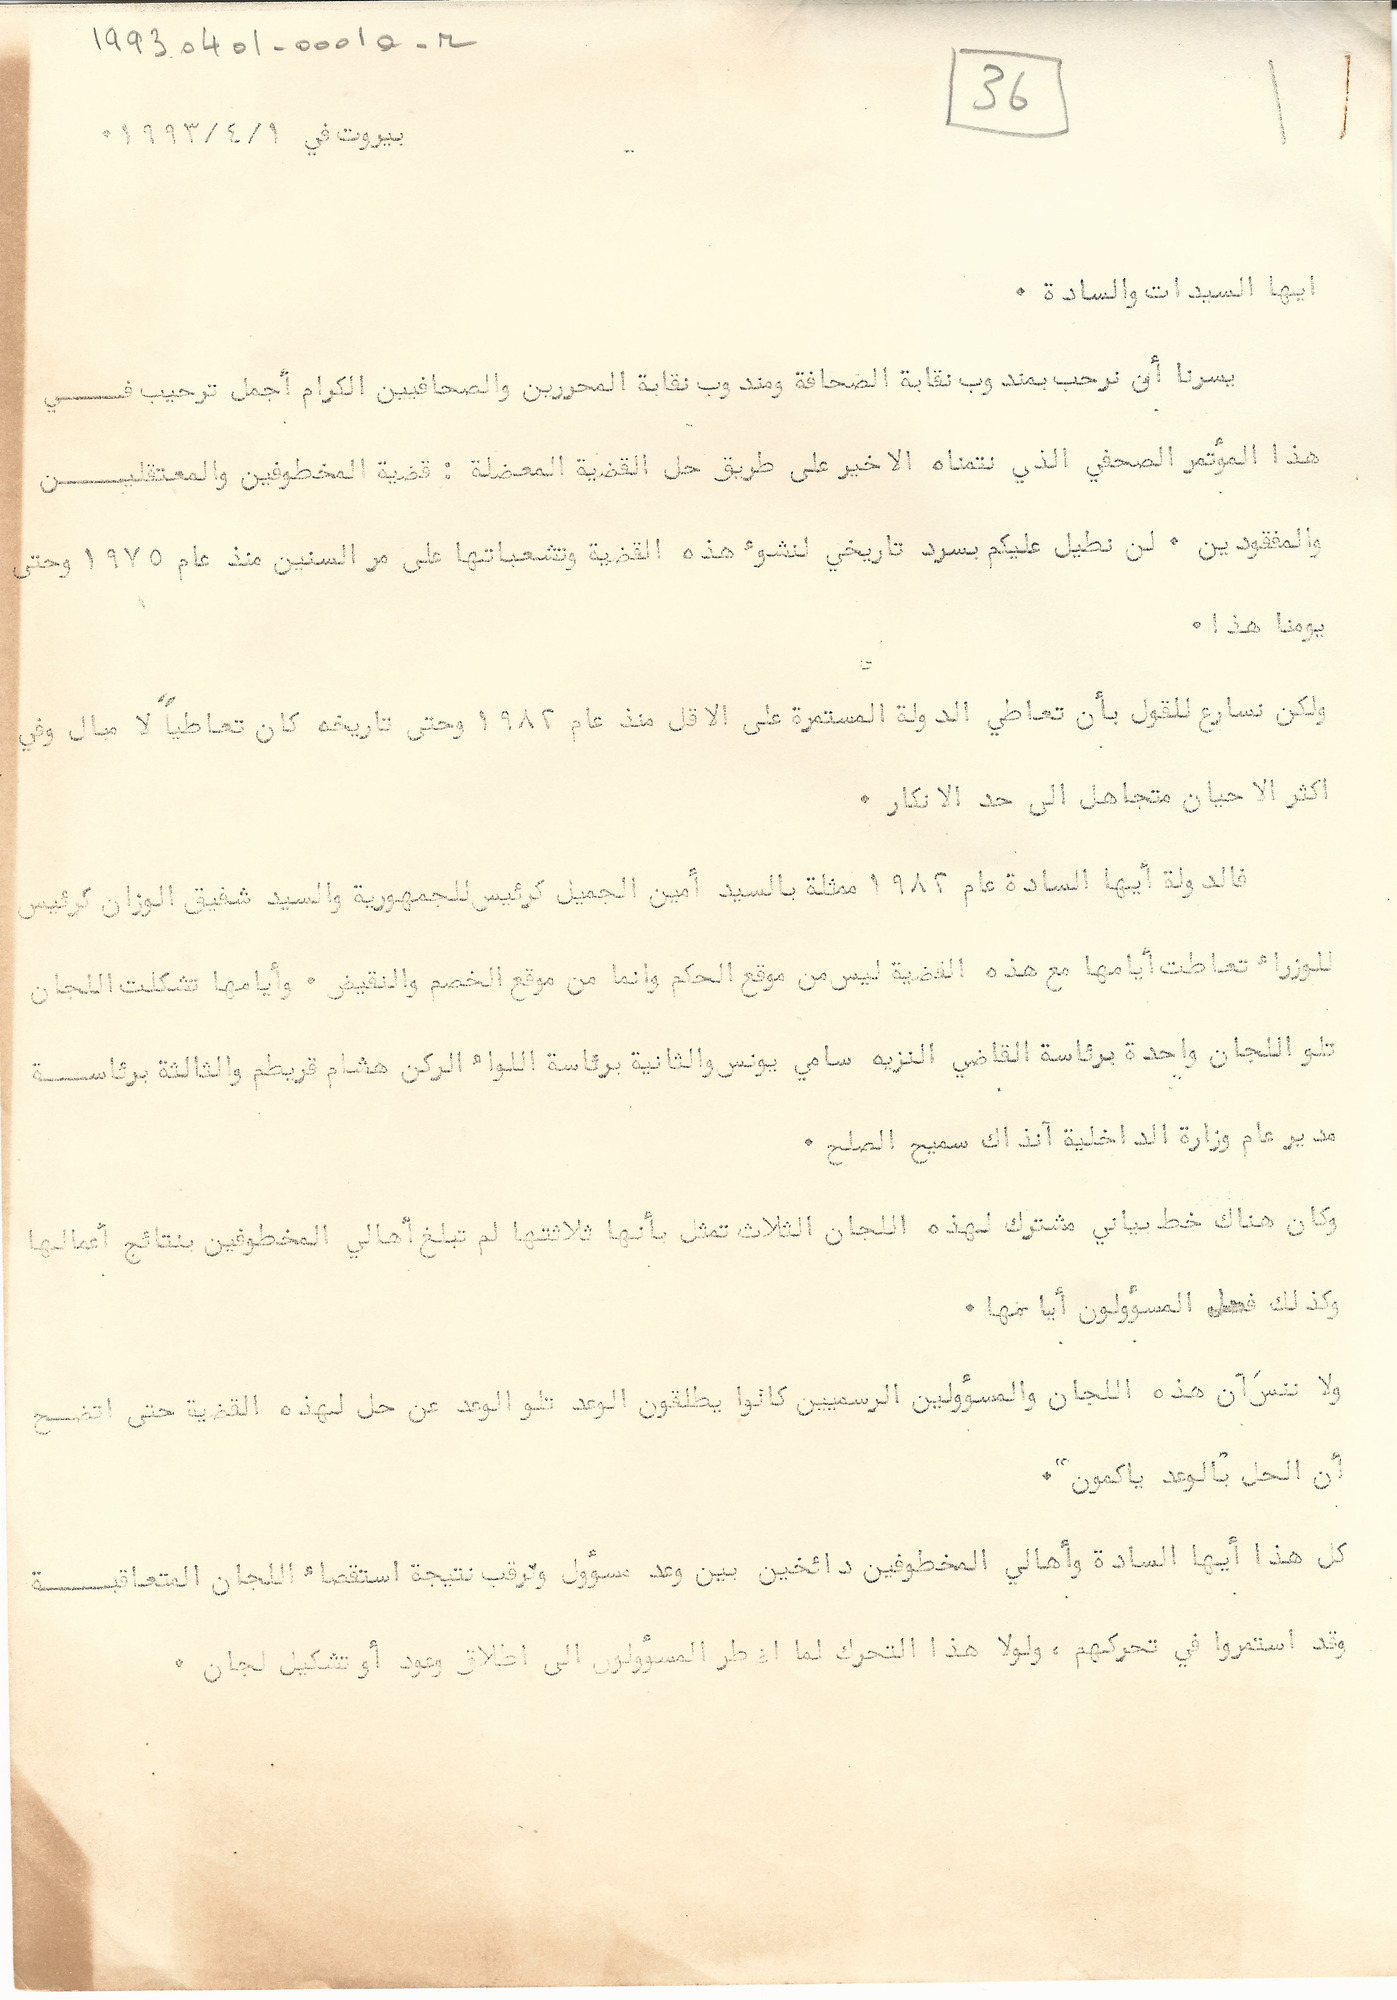 19930401-00010-r
36
بيروت في ١/٤/١٩٩٣٠
ايها السيدات والسادة ٠
يسرنا أن نرحب بمندوب نقابة الصحافة ومندوب نقابة المحررين والصحافيين الكرام أجمل ترحيب فــــي
هذا المؤتمر الصحفي الذي نتمناه الاخير على طريق حل القضية المعضلة : قضية المخطوفين والمعتقليــــن
والمفقودين ٠ لن نطيل عليكم بسرد تاريخي لنشوء هذه القضية وتشعباتها على مر السنين منذ عام ١٩٧٥ وحتى
يومنا هذا ٠
ولكن نسارع للقول بأن تعاطي الدولة المستمرة على الاقل منذ عام ١٩٨٢ وحتى تاريخه كان تعاطياً لا مبال وفي
اكثر الاحيان متجاهل الى حد الانكار ٠
فالدولة أيها السادة عام ١٩٨٢ ممثلة بالسيد أمين الجميل كرئيس للجمهورية والسيد شفيق الوزان كرئيس
للوزراء تعاطت أيامها مع هذه القضية ليس من موقع الحكم وانما من موقع الخصم والنقيض ٠ وأيامها تشكلت اللجان
تلو اللجان واحدة برئاسة القاضي النزيه سامي يونس والثانية برئاسة اللواء الركن هشام قريطم والثالثة برئاســـة
مدير عام وزارة الداخلية آنذاك سميح الصلح ٠
وكان هناك خط بياني مشترك لهذه اللجان الثلاث تمثل بأنها ثلاثتها لم تبلغ أهالي المخطوفين بنتائج أعمالها
وكذلك فعل المسؤولون أيامها ٠
ولا ننسَ أن هذه اللجان والمسؤولين الرسميين كانوا يطلقون الوعد تلو الوعد عن حل لهذه القضية حتى اتضــح
أن الحل "بالوعد ياكمون"٠
كل هذا أيها السادة وأهالي المخطوفين دائخين بين وعد مسؤول وترقب نتيجة استقصاء اللجان المتعاقبــــة
وقد استمروا في تحركهم ، ولولا هذا التحرك لما اضطر المسؤولون الى اطلاق وعود أو تشكيل لجان ٠